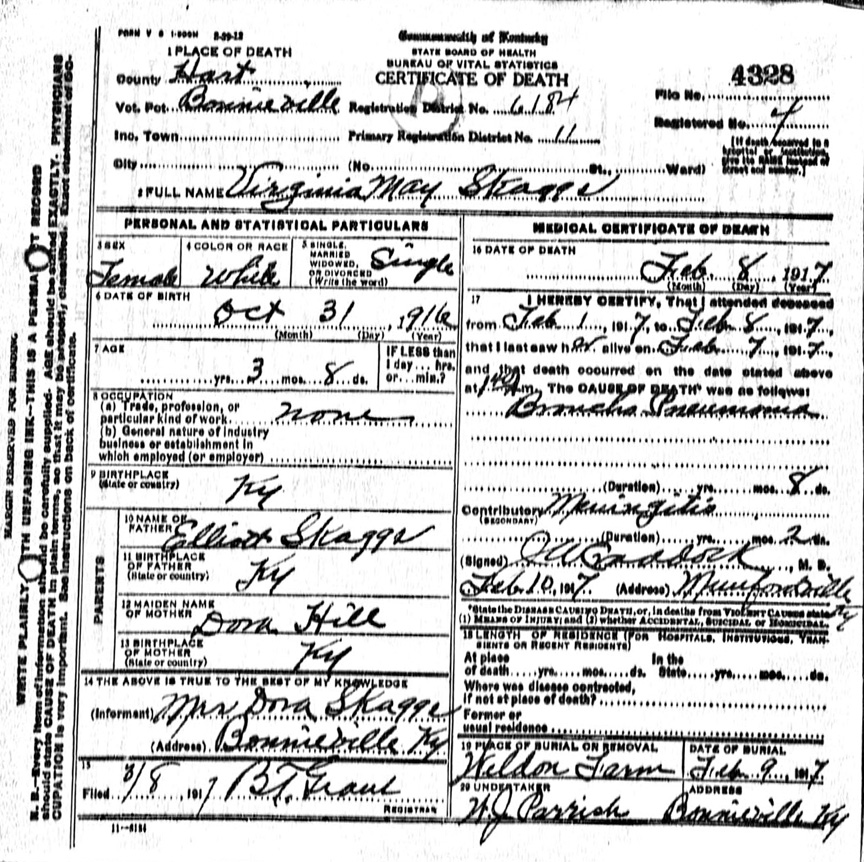 FORM V S 1-500M 2-29-12
Commonwealth of Kentucky
STATE BOARD OF HEALTH
BUREAU OF VITAL STATISTICS
CERTIFICATE OF DEATH
4328
File No.
Registered No. 4
[If death occurred in a hospital or institution, give its NAME instead of street and number.]
1 PLACE OF DEATH
County Hart
Vot. Pct. Bonnieville Registration District No. 6184
Inc. Town Primary Registration District No. 11
City (No St., Ward)
2 FULL NAME Virginia May Skaggs
PERSONAL AND STATISTICAL PARTICULARS
3 SEX
Female
4 COLOR OR RACE
White
5 SINGLE, MARRIED WIDOWED, OR DIVORCED (Write the word)
Single
6 DATE OF BIRTH
Oct 31 1916
(Month) (Day) (Year)
7 AGE
yrs. 3 mos. 8 ds.
IF LESS than 1 day ... hrs. or ... min.?
8 OCCUPATION
(a) Trade, profession, or particular kind of work none
(b) General nature of industry business or establishment in which employed (or employer)
9 BIRTHPLACE
(State or country)
Ky
PARENTS
10 NAME OF FATHER
Elliott Skaggs
11 BIRTHPLACE OF FATHER
(State or country)
Ky
12 MAIDEN NAME OF MOTHER
Dora Hill
13 BIRTHPLACE OF MOTHER
(State or country)
Ky
14 THE ABOVE IS TRUE TO THE BEST OF MY KNOWLEDGE
(Informant) Mrs Dora Skaggs
(Address) Bonnieville Ky
15
Filed 3/8 1917 B.T. Grant
REGISTRAR
11-6184
MEDICAL CERTIFICATE OF DEATH
16 DATE OF DEATH
Feb. 8 1917
(Month) (Day) (Year)
17 I HEREBY CERTIFY, That I attended deceased
from Feb 1, 1917, to Feb 8, 1917,
that I last saw her alive on Feb 7, 1917,
and that death occurred on the date stated above
at m. The CAUSE OF DEATH* was as follows:
Broncho Pneumonia
(Duration) yrs. mos. 8 ds.
Contributory Meningitis
(SECONDARY)
(Duration) yrs. mos. 2 ds.
(Signed) Craddock, M. D.
Feb. 10, 1917 (Address) Munfordville Ky
*State the DISEASE CAUSING DEATH, or, in deaths from VIOLENT CAUSES state
(1) MEANS OF INJURY; and (2) whether ACCIDENTAL, SUICIDAL or HOMICIDAL.
18 LENGTH OF RESIDENCE (FOR HOSPITALS, INSTITUTIONS, TRANSIENTS OR RECENT RESIDENTS)
At place of death yrs. mos. ds. In the State yrs. mos. ds.
Where was disease contracted,
if not at place of death?
Former or
usual residence
19 PLACE OF BURIAL OR REMOVAL
Weldon Farm
DATE OF BURIAL
Feb. 9, 1917
20 UNDERTAKER
W J Parrish
ADDRESS
Bonnieville Ky
MARGIN RESERVED FOR BINDING
WRITE PLAINLY WITH UNFADING INK—THIS IS A PERMANENT RECORD
N. B.—Every item of information should be carefully supplied. AGE should be stated EXACTLY. PHYSICIANS
should state CAUSE OF DEATH in plain terms, so that it may be properly classified. Exact statement of OC-
CUPATION is very important. See instructions on back of certificate.